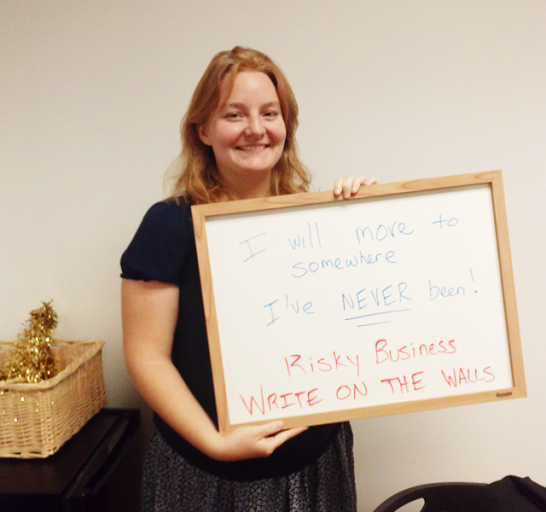 I will move to
somewhere
I've NEVER been!
Risky Business
WRITE ON THE WALLS